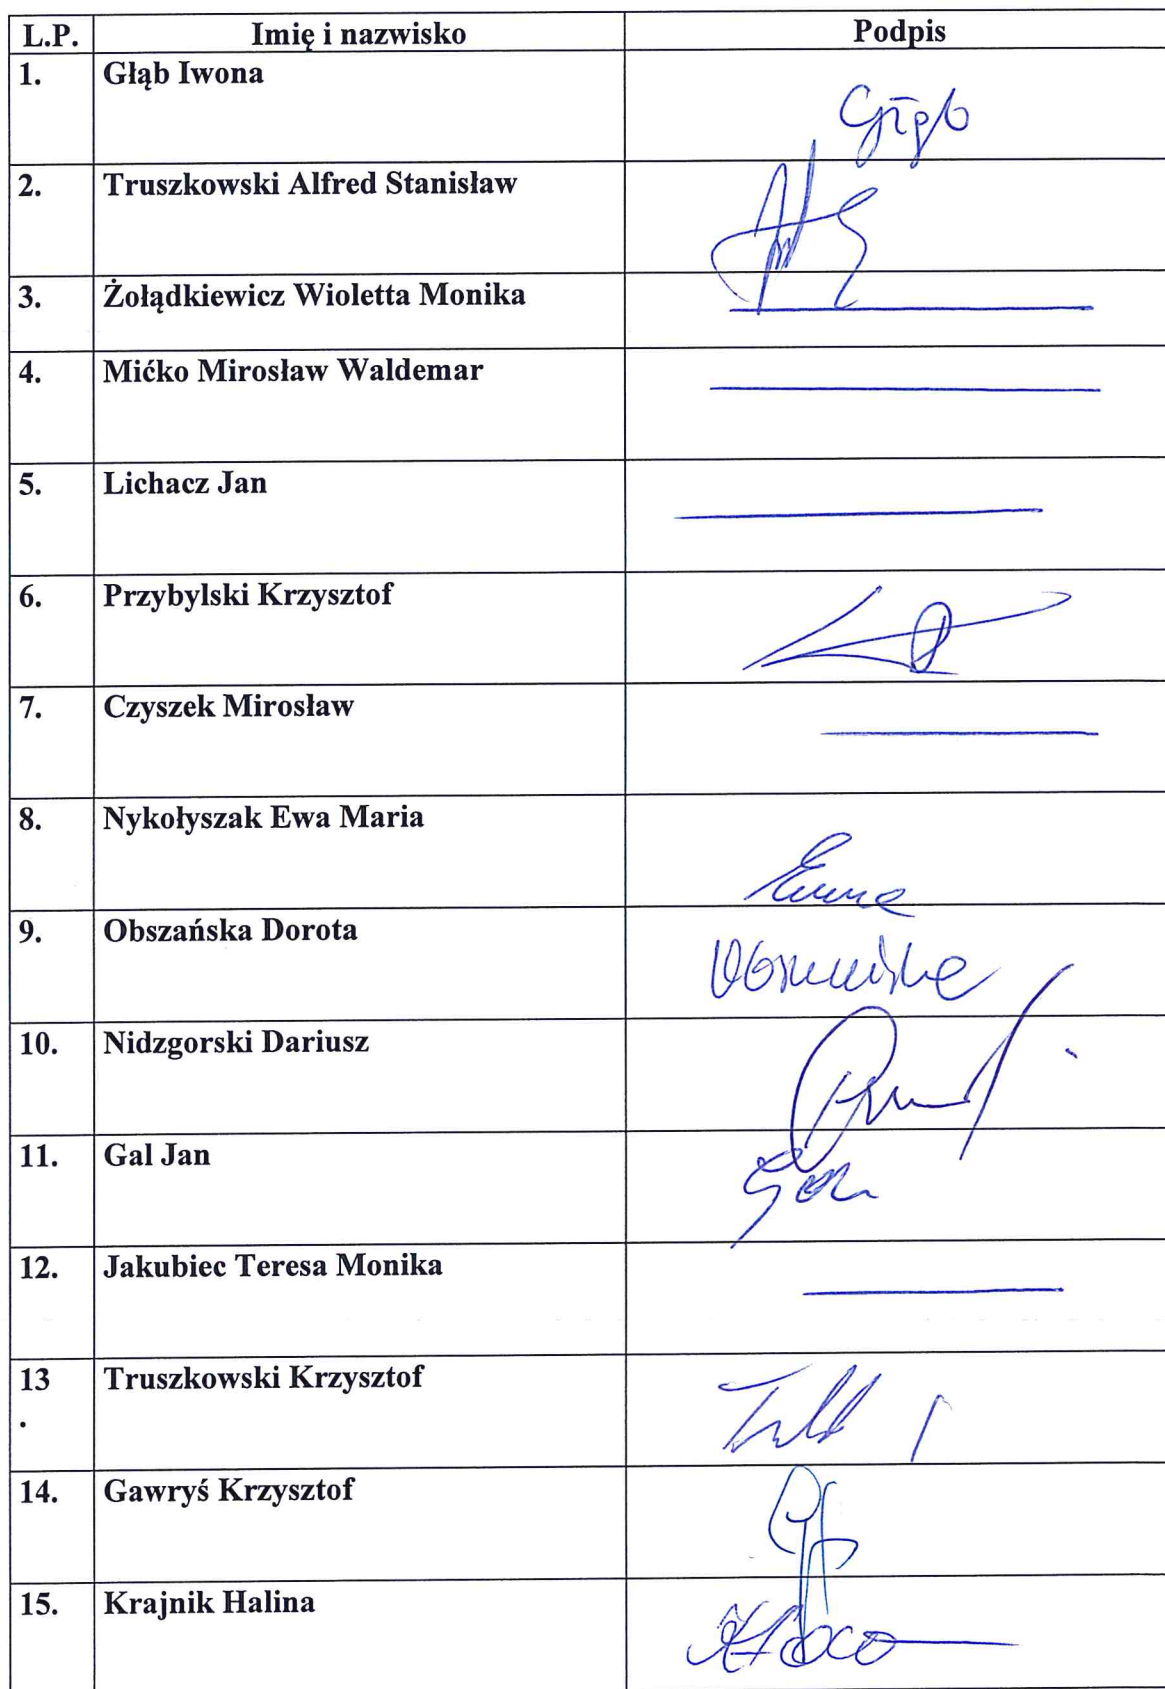 L.P. Imię i nazwisko Podpis
1. Głąb Iwona Głąb
2. Truszkowski Alfred Stanisław
3. Żołądkiewicz Wioletta Monika
4. Mićko Mirosław Waldemar
5. Lichacz Jan
6. Przybylski Krzysztof
7. Czyszek Mirosław
8. Nykołyszak Ewa Maria
9. Obszańska Dorota
10. Nidzgorski Dariusz
11. Gal Jan
12. Jakubiec Teresa Monika
13 Truszkowski Krzysztof
.
14. Gawryś Krzysztof
15. Krajnik Halina